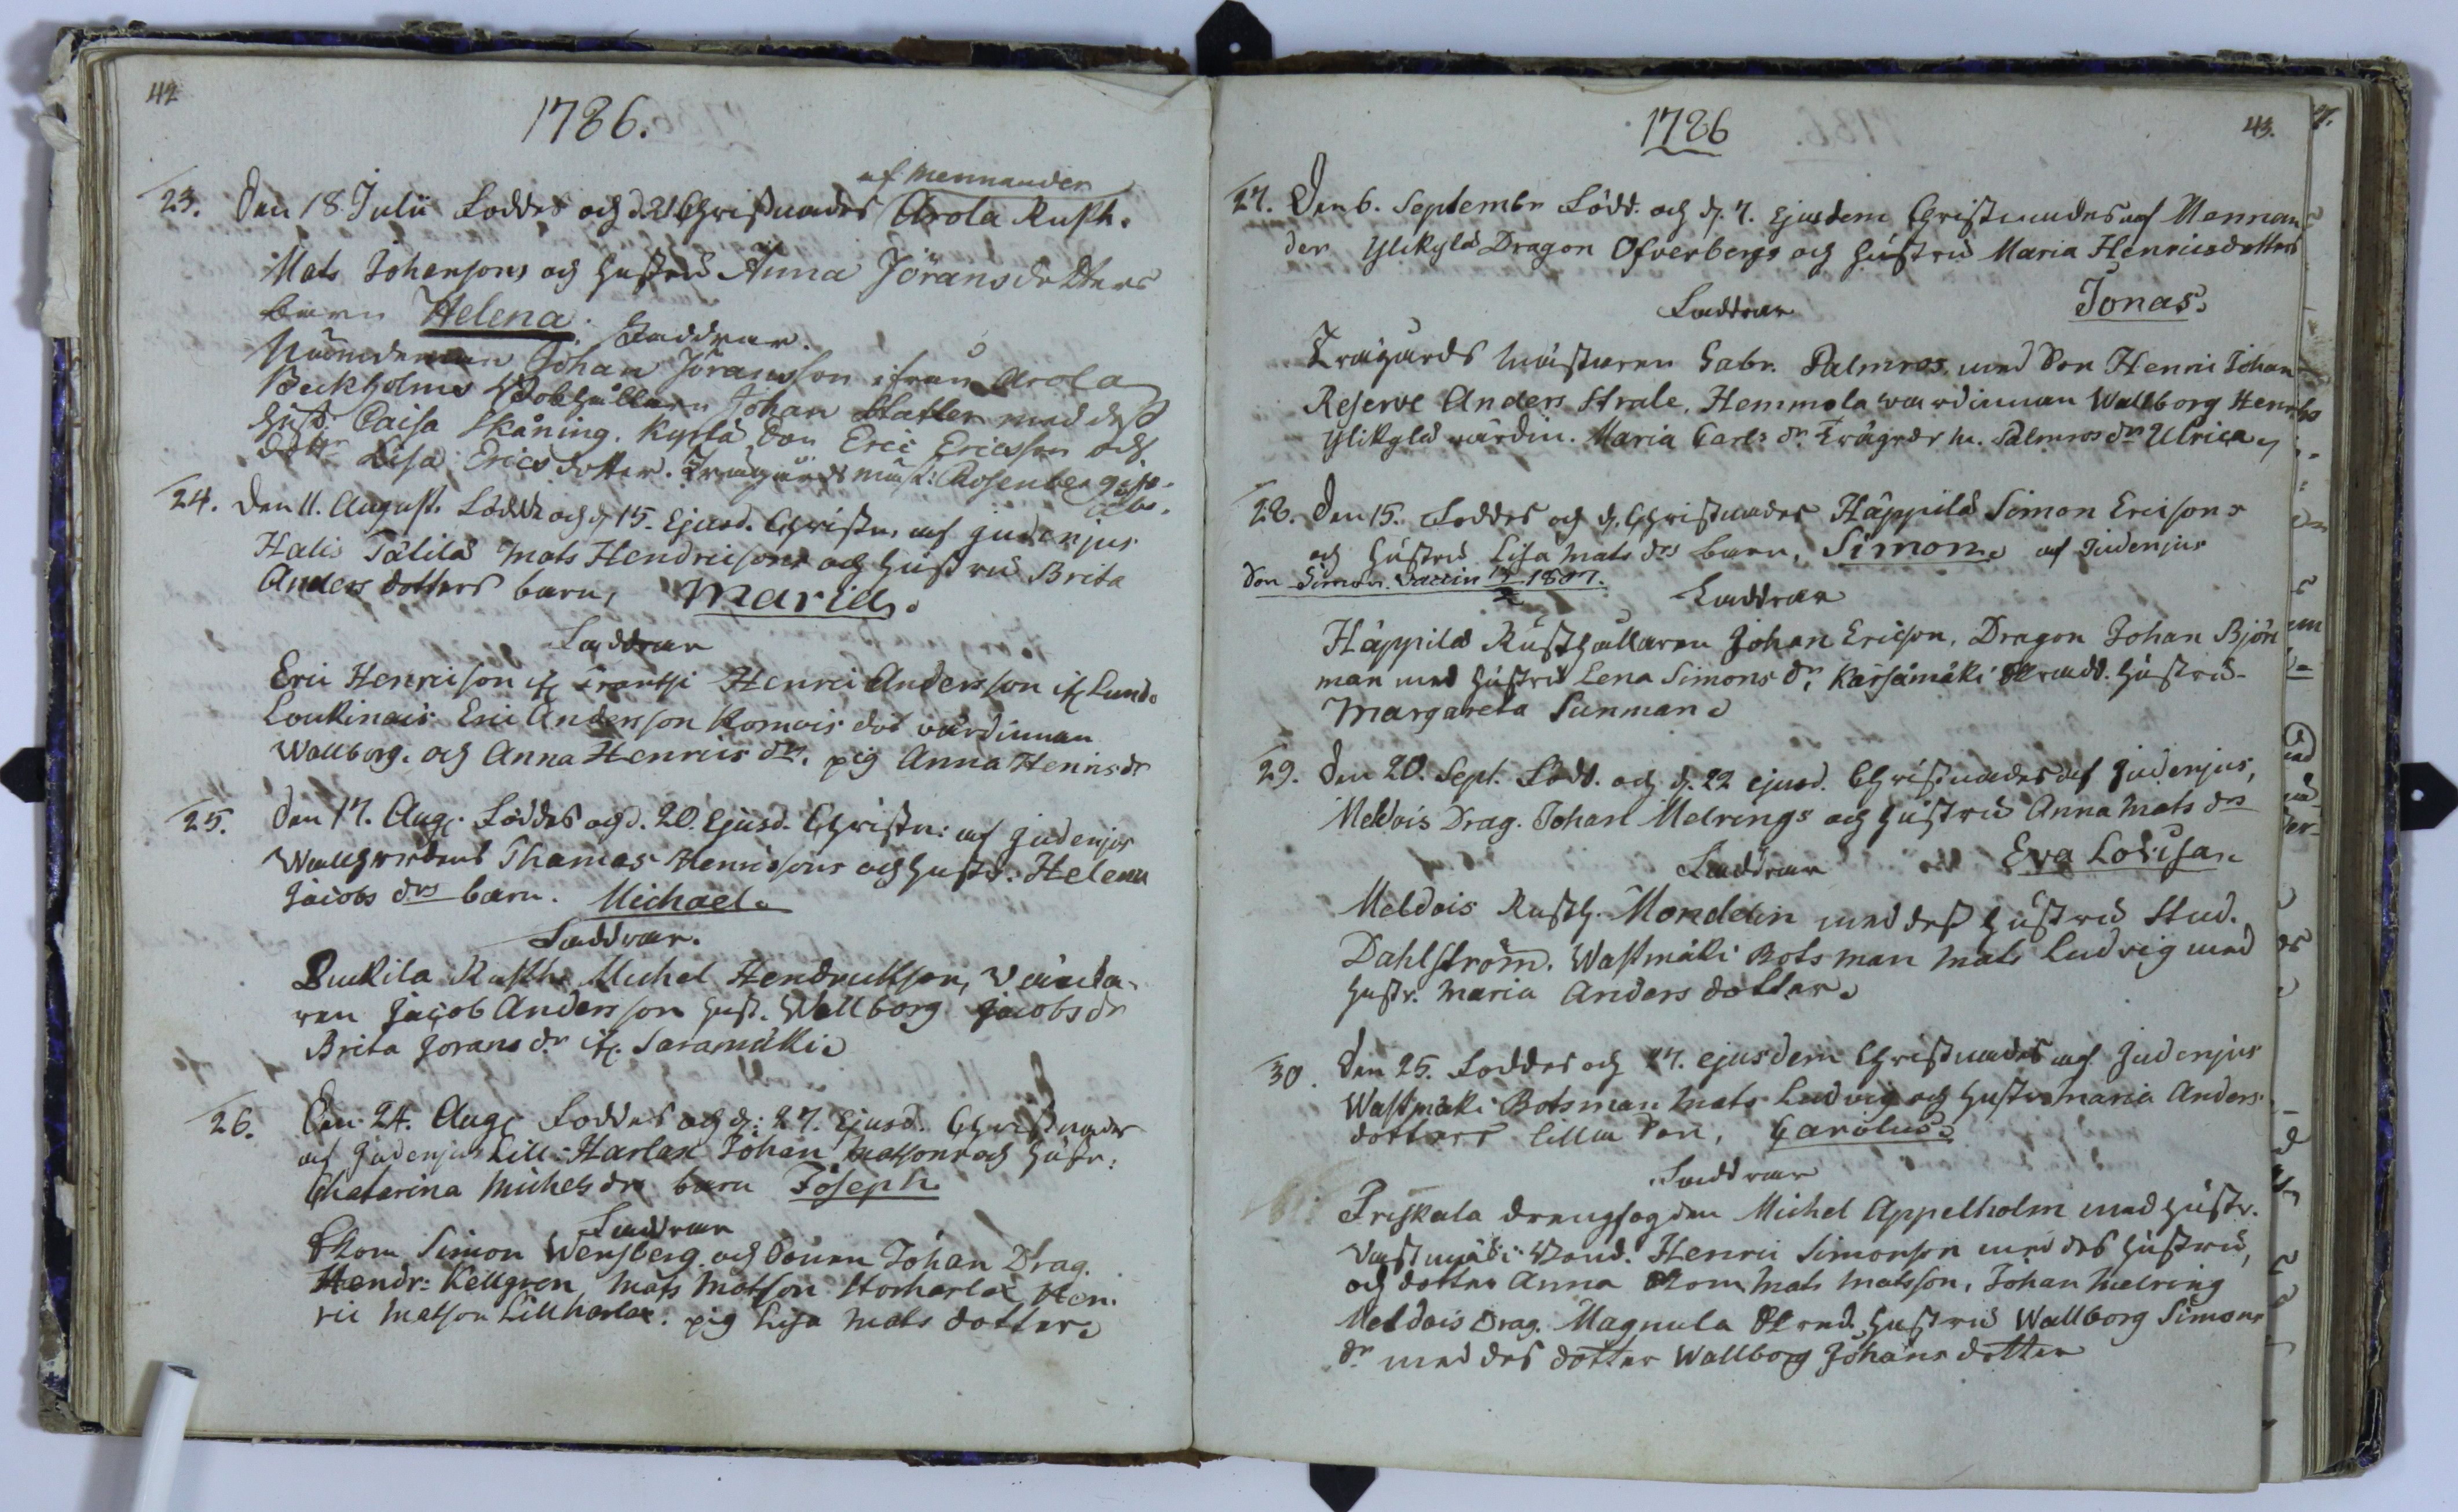 42
1786.
af Mennander
23. Den 18. Julii Föddes och d. 21 Christnades Arola Rusth.
Mats Johansons och hustrus Anna Jöransdotters
barn Helena. Faddrar.
Nämdeman Johan Jöransson ifrån Arola
Beckholms Johan Statler med dess
hust. Caisa Skåning. Kyrkã Son Eric Ericsson och
dottr Lisa Ericsdotter. Trägårds mäst: Rosenberg
24. Den 11. August. Födde och d. 15. Ejusd. Christn. af Judenjus
Halis Tätilä Mats Hendricsons och hustrus Brita
Anders dotters barn, Maria.
Faddrar
Eric Henricson if. Frantsi Henric Andersson if. Lundo
Loukinais Eric Andersson Komois dot värdinnan
Wallborg. och Anna Henrics dr. pig Anna Henrics dr
25. Den 17. Aug. Föddes och d. 20. Ejusd. Christn: af Judenjus
Thomas Henricsons och hustr. Helena
Jacobs drs barn. Michael.
Faddrar.
Ruskila Rusth. Michel Hendricksson, Wäcta-
ren Jacob Andersson hust. Wallborg Jacobs dr
Brita Jörans dr if. Saramäki.
26. Den 24. Aug. Föddes och d: 27. Ejusd. Christnades
af Judenjus Lill-Harlax Johan Matsons och hustr:
Chatarina Michels drs barn Joseph
Faddrar
Skom Simon Wensberg och Sonen Johan Drag.
Hendr: Kellgren Mats Matsson Storharlax Hen-
ric Matson Lillharlax. pig Lisa Mats dotter.
43.
1786
27. Den 6. Septembr Född. och d. 7. ejusdem Christnades af Mennan
der Ylikylä Dragon Öfverbergs och hustrus Maria Henricsdotters
Faddrar Jonas.
Trägårds mästaren Gabr. Palmros, med Son Henric Johan
Reserve Anders Strale, Hemmola wärdinnan Wallborg Henrics
Ylikylä värdin. Maria Carls dr. Trägrdr m. Palmros dr Ulrica
28. Den 15. Föddes och d. Christnades Häppilä Simon Ericsons
och hustrus Lisa Mats drs barn, Simon. af Judenjus
Son Simon. Vaccin 1807.
Faddrar
Häppilä Rusthållaren Johan Ericson, Dragon Johan Björk
man med hustru Lena Simons dr. Kärsämäki hustru
Margareta Sunman.
29. Den 20. Sept. Född. och d. 22 ejusd. Christnades af Judenjus,
Meldois Drag. Johan Melrings och hustrus Anna Mats drs
Faddrar Eva Lovisa.
Meldois Rusth. Mondelin med dess hustru Stud.
Dahlström. Wastmäki Botsman Mats Ludvig med
hustr. Maria Anders dotter.
30. Den 25. Föddes och 27. ejusdem Christnades af Judenjus
Wastmäki Botsman Mats Ludvig och hustrs Maria Anders
dotters lilla Son, Carolus.
Faddrar
Friskala drengfogden Michel Appelholm med hustr.
Vastmäki Bond. Henric Simonson med des hustru,
och dotter Anna Skom Mats Matsson, Johan Melring
Meldois Drag. Magnula hustru Wallborg Simons
dr med des dotter Wallborg Johans dotter